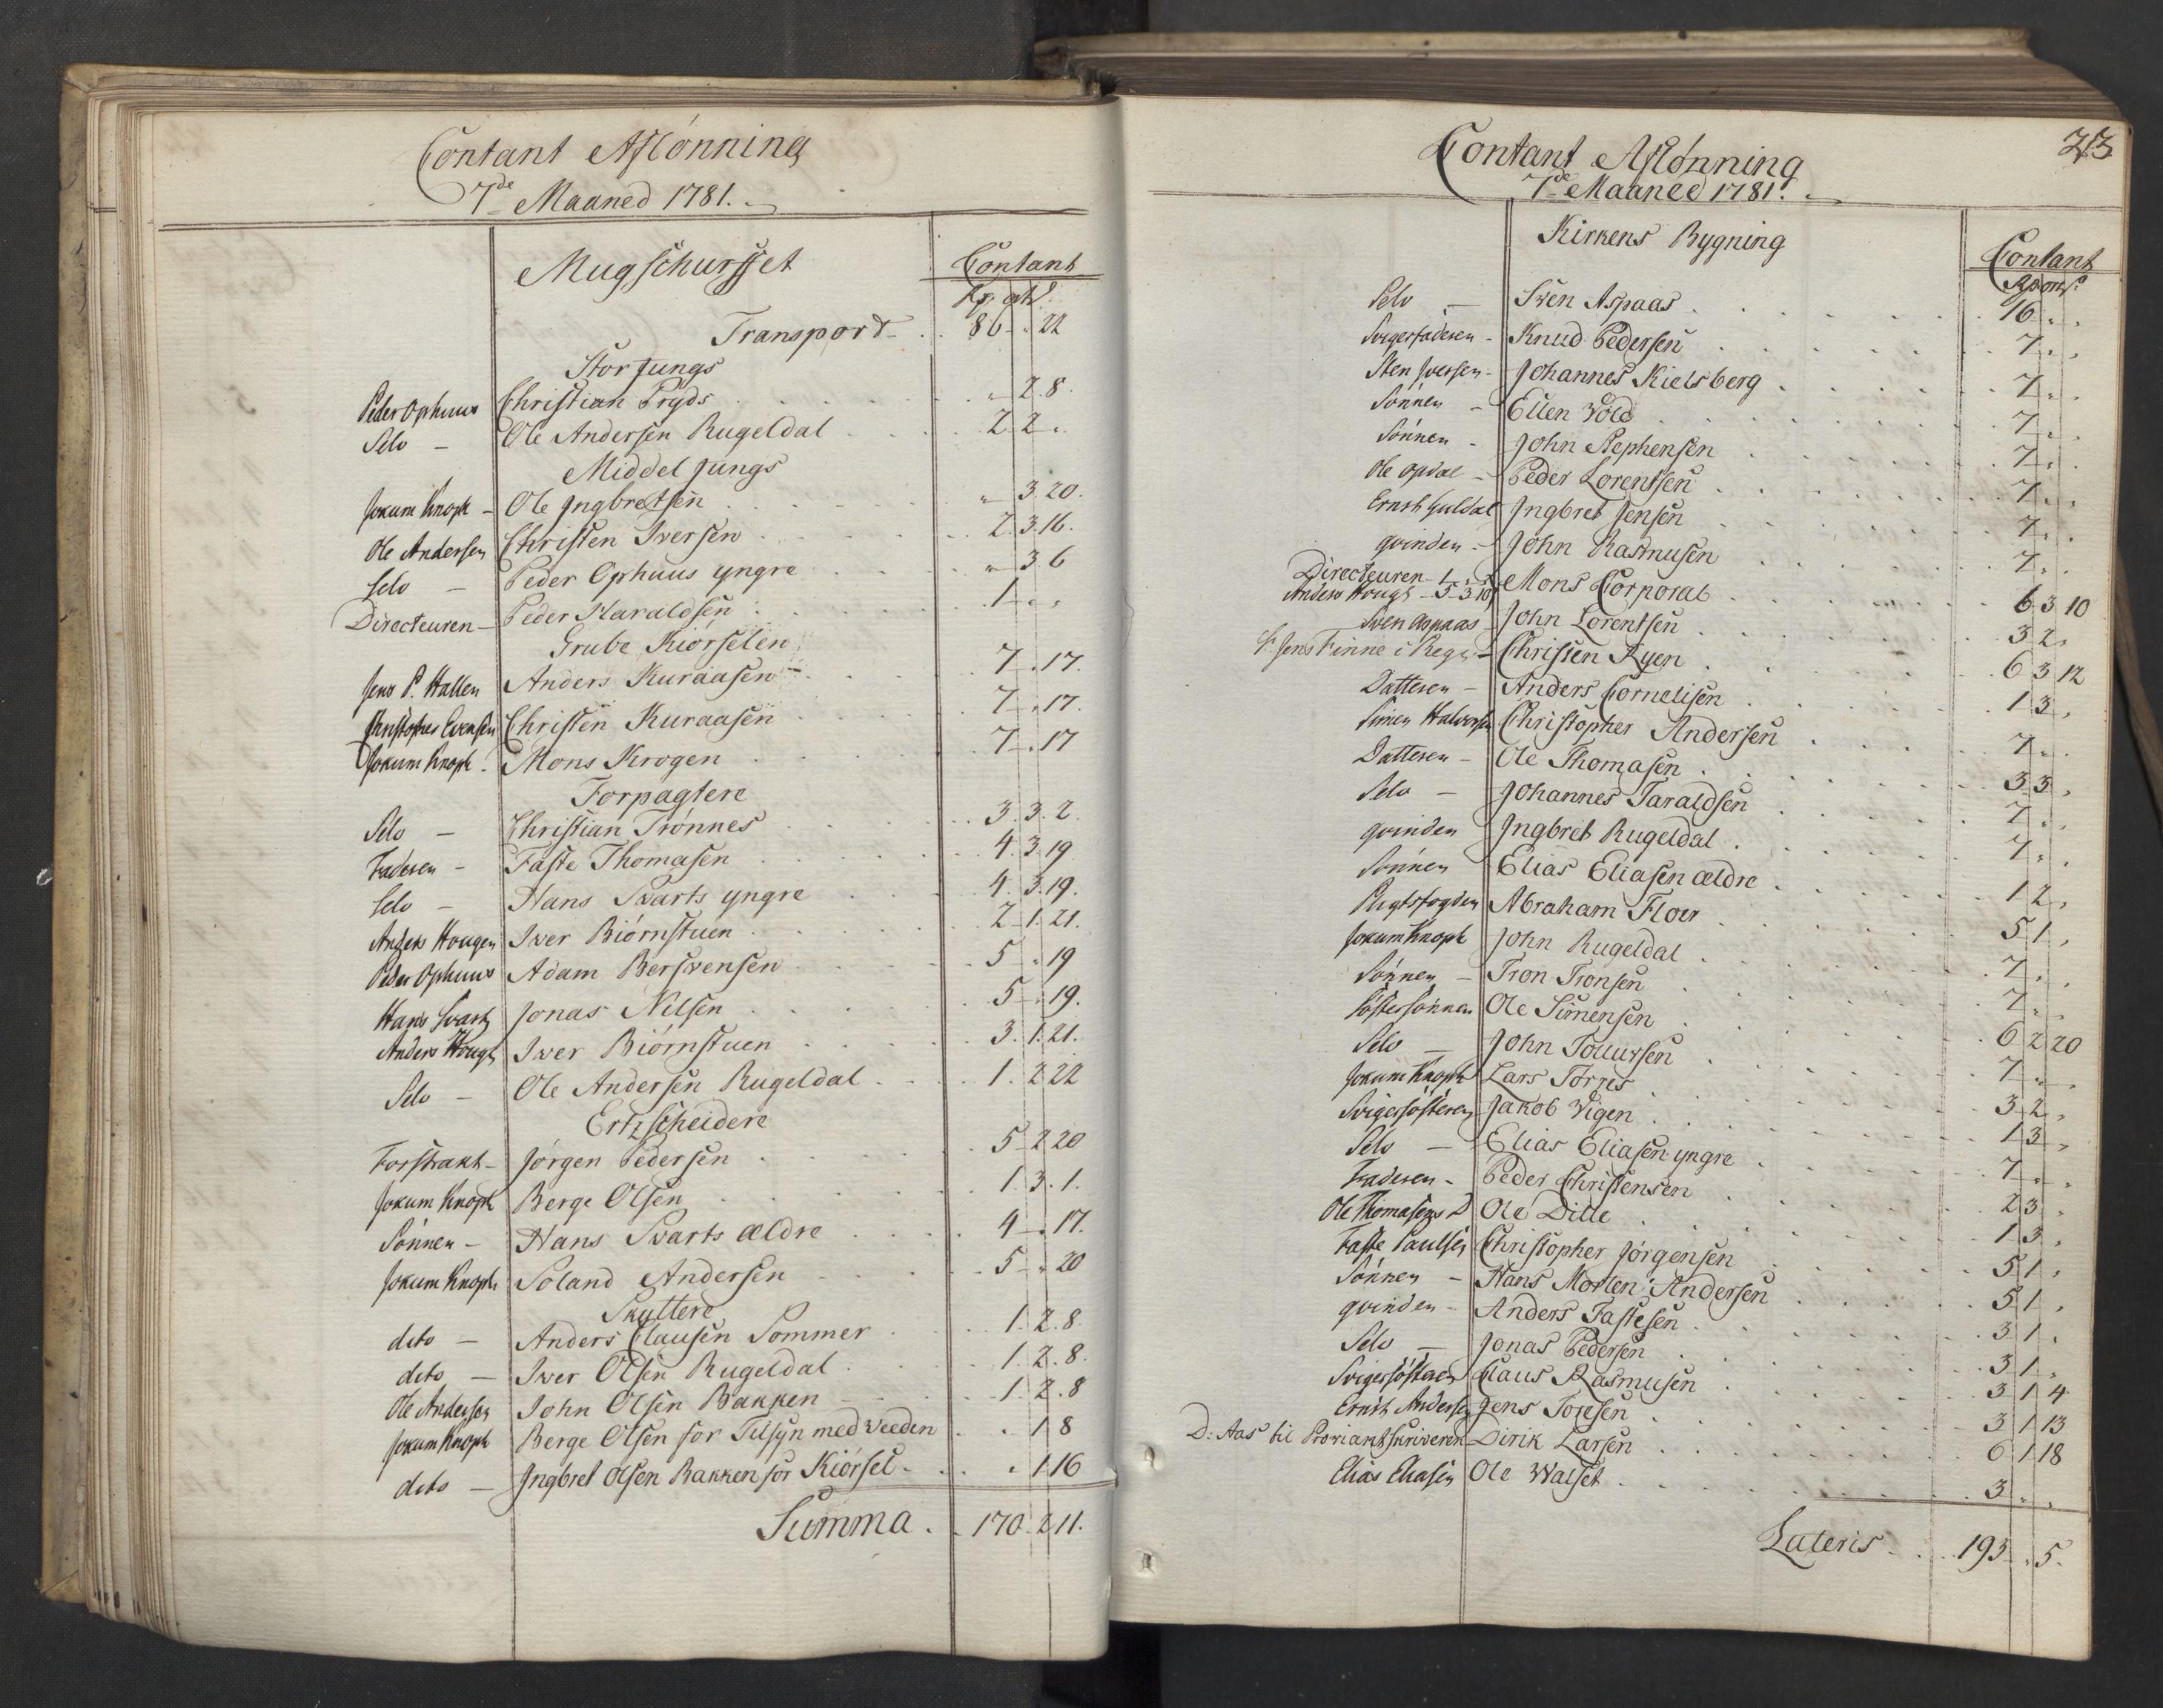 Contant Aflónning
7de Maaned 1781.
Mugschursset
Contant
Rp. ort s.
Transport - 86 - „ 22
Stor Jungs
Peder Ophuus Christian Pryds „ 2. 8.
Selv - Ole Andersen Rugeldal 2. 2 „
Middel Jungs
Jokum Knoph - Ole Ingbretsen „ 3. 20.
Ole Andersen Christen Iversen 2. 3. 16.
Selv - Peder Ophuus yngre „ 3 6
Directeuren - Peder Haraldsen 1 „ „
Grube Kiörselen
Jens P. Hallen Anders Kuraasen 7 „ 17.
Christopher Evensen Christen Kuraasen 7 „ 17.
Jokum Knoph - Mons Krogen 7 „ 17
Forpagtere
Selv - Christian Trønnes 3. 3. 2.
Faderen - Faste Thomasen 4. 3 19
Selv - Hans Svarts yngre 4. 3. 19.
Anders Hougen Iver Biörnstuen 2 1. 21.
Peder Ophuus Adam Berswensen 5 „ 19
Hans Svarts Jonas Nilsen 5 „ 19.
Anders Houg Iwer Biörnstuen 3. 1. 21.
Selv - Ole Andersen Rugeldal 1. 2 22
Ertzscheidere
Forstrakt - Jørgen Pedersen 5 2 20
Jokum Knoph Berge Olsen 1. 3. 1.
Sónnen - Hans Svarts ældre 4 „ 17.
Jokum Knoph Soland Andersen 5 „ 20
Skyttere
dito - Anders Clausen Sommer 1. 2. 8.
dito - Iwer Olsen Rugeldal 1. 2. 8.
Ole Andersen John Olsen Bakken 1. 2. 8
Jokum Knoph Berge Olsen for Tilsyn med Veeden . 1 8
dito - Ingbret Olsen Bakken for Kiörsel „ 1 16
Summa 170. 2 11.
23
Contant Aflónning
7de Maaned 1781.
Kirkens Bygning
Contant
Rp ort s.
Selv - Swen Aspaas 16 „ „
Svigerfaderen - Knud Pedersen 7 „ „
Sten Iversen - Johannes Kielsberg 7 „ „
Sónnen - Ellen Vold 7 „ „
Sónnen - John Stephensen 7 „ „
Ole Opdal - Peder Lorentsen 7 „ „
Ernst Guldal Ingbret Jensen 7 „ „
qvinden - John Rasmusen 7 „ „
Directeuren - 1 „ „
Anders Hougs - 5 3 10 Mons Corporal 6 3 10
Sven Aspaas - John Lorentsen 3 2 „
Jens Finne i Regs - Christen Ryen 6 3 12
Datteren - Anders Cornelisen 1 3 „
Simen Halvorsen Christopher Andersen 7 „ „
Datteren - Ole Thomasen 3 3 „
Selv - Johannes Taraldsen 7 „ „
qvinden Ingbret Rugeldal 7 „ „
Sónnen Elias Eliasen ældre 1 2 „
Rigtsfogden Abraham Floer 5 1 „
Jokum Knoph John Rugeldal 7 „ „
Sónnen - Tron Tronsen 7 „ „
Söstersónnen Ole Simensen 6 2 20
Selv - John Tollufsen 7 „ „
Jokum Knoph Lars Torres 3 2 „
Svigersösteren Jakob Vigen 1 3 „
Selv - Elias Eliasen yngre 7 „ „
Faderen - Peder Christensen 2 3 „
Ole Thomasens D Ole Dille 1 3 „
Faste Paulsen Christopher Jörgensen 5 1 „
Sónnen - Hans Morten Andersen 5 1 „
qvinden - Anders Fastesen 3 1 „
Selv - Jonas Pedersen 3 1 „
Svigersösteren Claus Rasmusen 3 1 4
Ernst Andersen Jens Toresen 3 1 13
D: Aas til Proviantskriveren Dirik Larsen 6 1 18
Elias Eliasen Ole Walset 3 „ „
Lateris 193 „ 5.